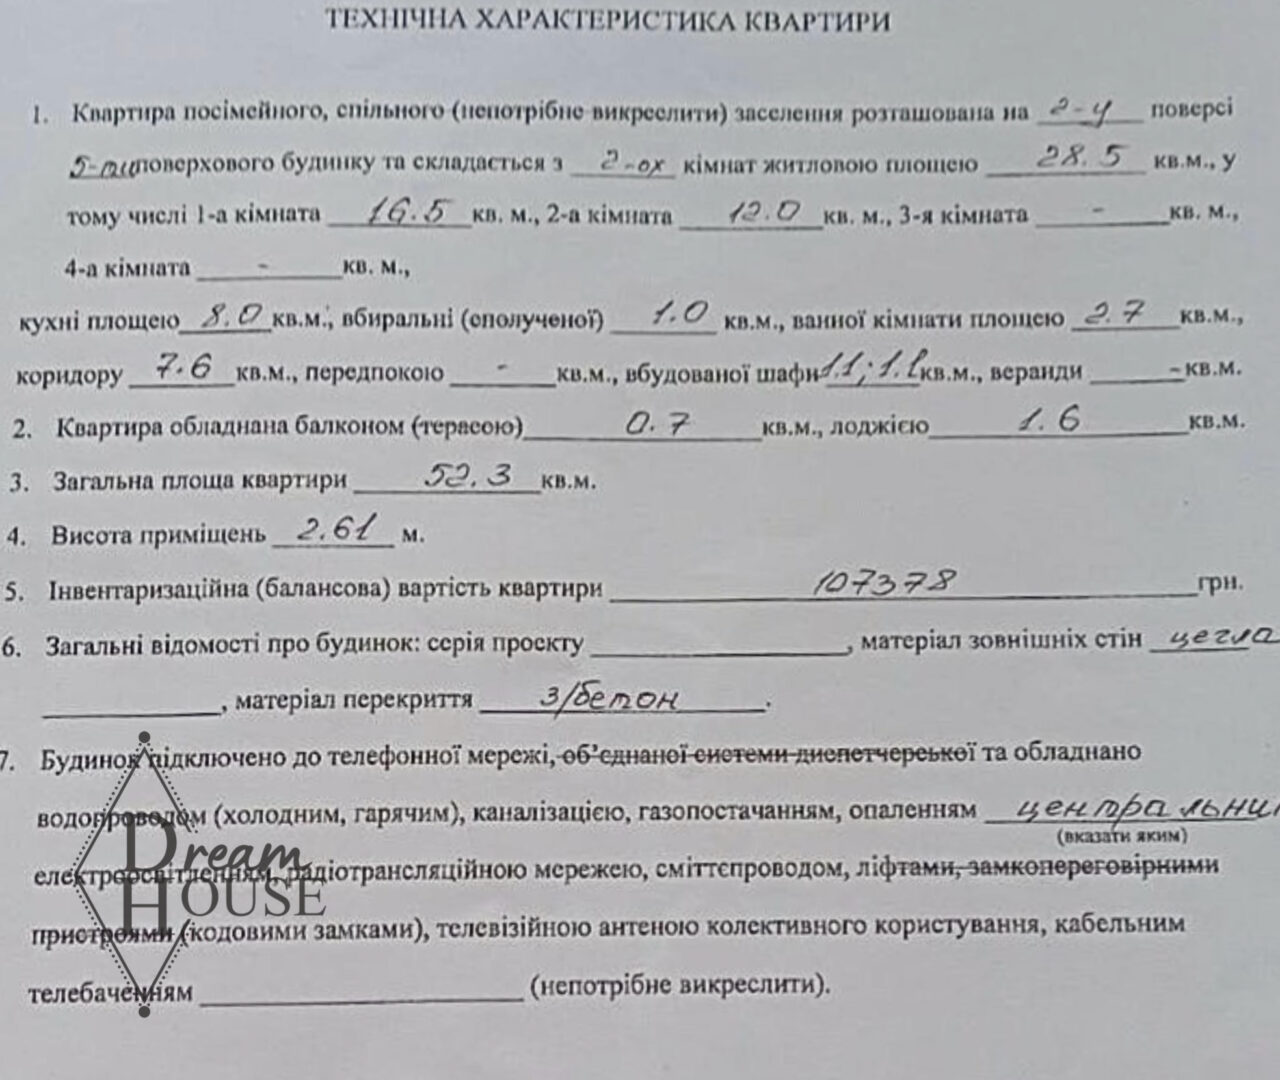 ТЕХНІЧНА ХАРАКТЕРИСТИКА КВАРТИРИ
1. Квартира посімейного, спільного (непотрібне викреслити) заселення розташована на 2-у поверсі
5-типоверхового будинку та складається з 2-ох кімнат житловою площею 28.5 кв.м., у
тому числі 1-а кімната 16.5 кв. м., 2-а кімната 12.0 кв. м., 3-я кімната - кв. м.,
4-а кімната - кв. м.,
кухні площею 8.0 кв.м., вбиральні (сполученої) 1.0 кв.м., ванної кімнати площею 2.7 кв.м.,
коридору 7.6 кв.м., передпокою - кв.м., вбудованої шафи 1.1; 1.1 кв.м., веранди - кв.м.
2. Квартира обладнана балконом (терасою) 0.7 кв.м., лоджією 1.6 кв.м.
3. Загальна площа квартири 52.3 кв.м.
4. Висота приміщень 2.61 м.
5. Інвентаризаційна (балансова) вартість квартири 107378 грн.
6. Загальні відомості про будинок: серія проєкту , матеріал зовнішніх стін цегла
, матеріал перекриття з/бетон .
7. Будинок підключено до телефонної мережі, об'єднаної системи диспетчерської та обладнано
водопроводом (холодним, гарячим), каналізацією, газопостачанням, опаленням центральним
(вказати яким)
електроосвітленням, радіотрансляційною мережею, сміттєпроводом, ліфтами, замкопереговірними
пристроями (кодовими замками), телевізійною антеною колективного користування, кабельним
телебаченням (непотрібне викреслити).
Dream
House